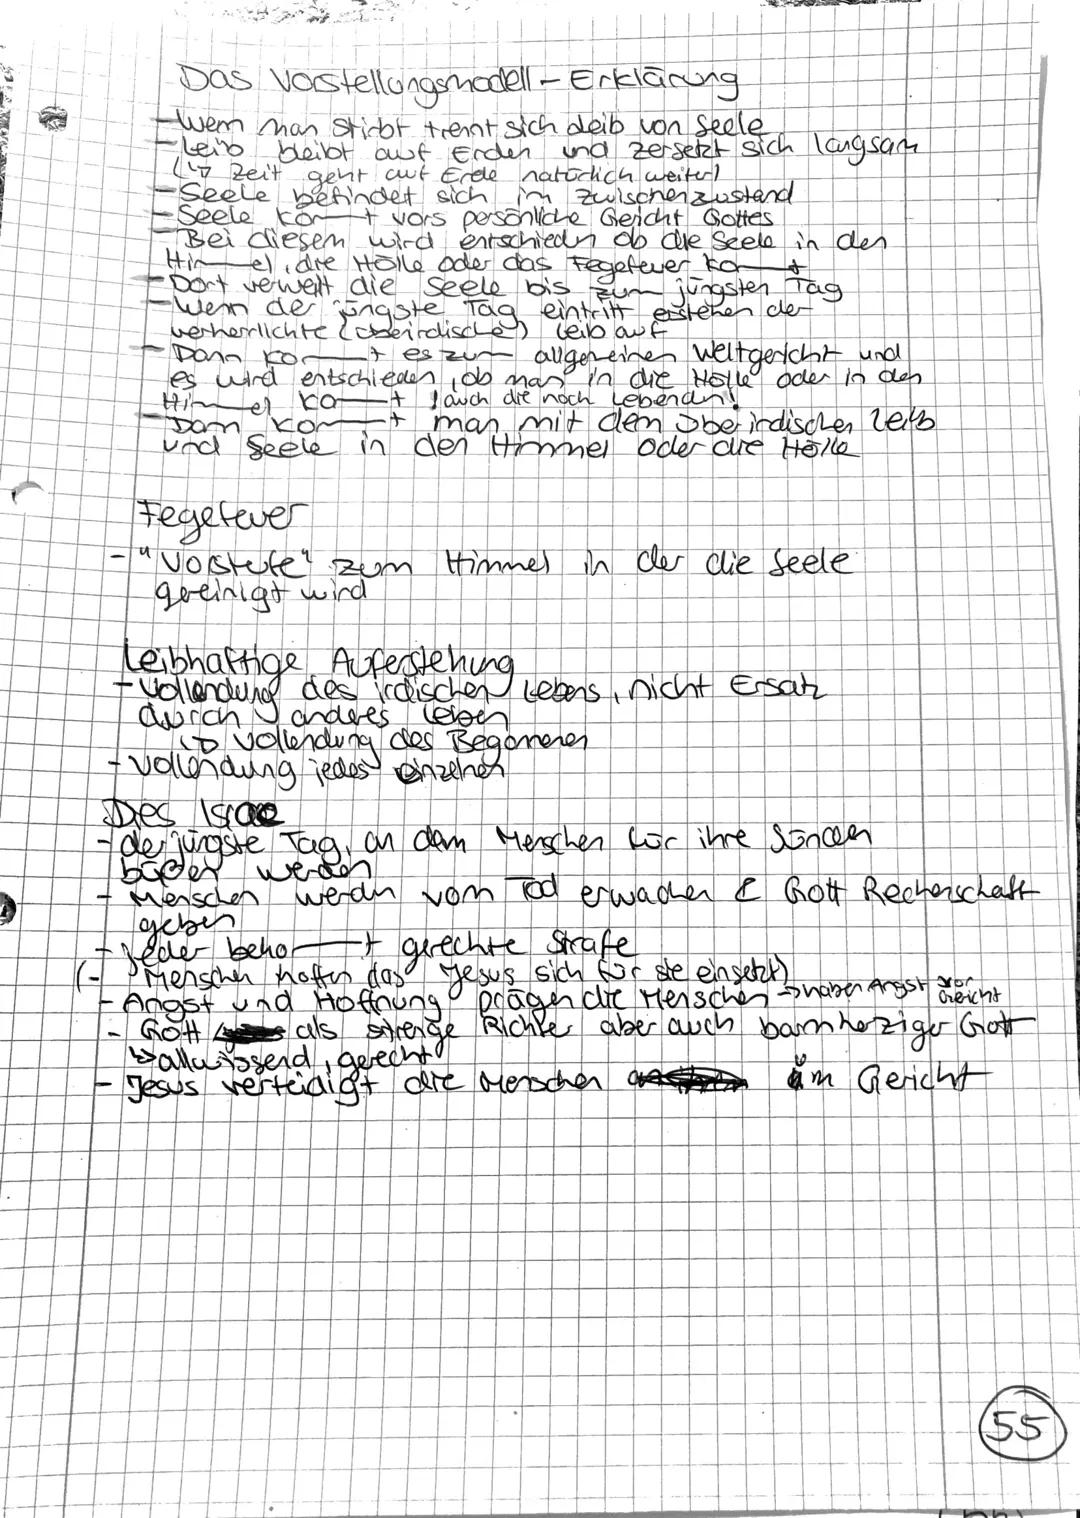 Das Vorstellungsmodell – Erklärung
- Wenn man stirbt trennt sich Leib von Seele
- Leib bleibt auf Erden und zersetzt sich langsam
(↳ Zeit geht auf Erde natürlich weiter)
- Seele befindet sich im Zwischenzustand
- Seele kommt vors persönliche Gericht Gottes
- Bei diesem wird entschieden ob die Seele in den
Himmel, die Hölle oder das Fegefeuer kommt
- Dort verweilt die Seele bis zum jüngsten Tag
- Wenn der jüngste Tag eintritt erstehen der
verherrlichte (überirdische) Leib auf
- Dann kommt es zum allgemeinen Weltgericht und
es wird entschieden, ob man in die Hölle oder in den
Himmel kommt, auch die noch Lebenden!
- Dann kommt man mit dem überirdischen Leib
und Seele in den Himmel oder die Hölle
Fegefeuer
- "Vorstufe" zum Himmel in der die Seele
gereinigt wird
Leibhaftige Auferstehung
- Vollendung des irdischen Lebens, nicht Ersatz
durch anderes Leben
↳ Vollendung des Begonnenen
- Vollendung jedes einzelnen
Dies Irae
- der jüngste Tag, an dem Menschen für ihre Sünden
büßen werden
- Menschen werden vom Tod erwachen & Gott Rechenschaft
geben
- Jeder bekommt gerechte Strafe
(- Menschen hoffen das Jesus sich für sie einsetzt)
- Angst und Hoffnung prägen die Menschen → haben Angst vor Gericht
- Gott als strenge Richter aber auch barmherziger Gott
↳ allwissend, gerecht
- Jesus verteidigt die Menschen im Gericht
55